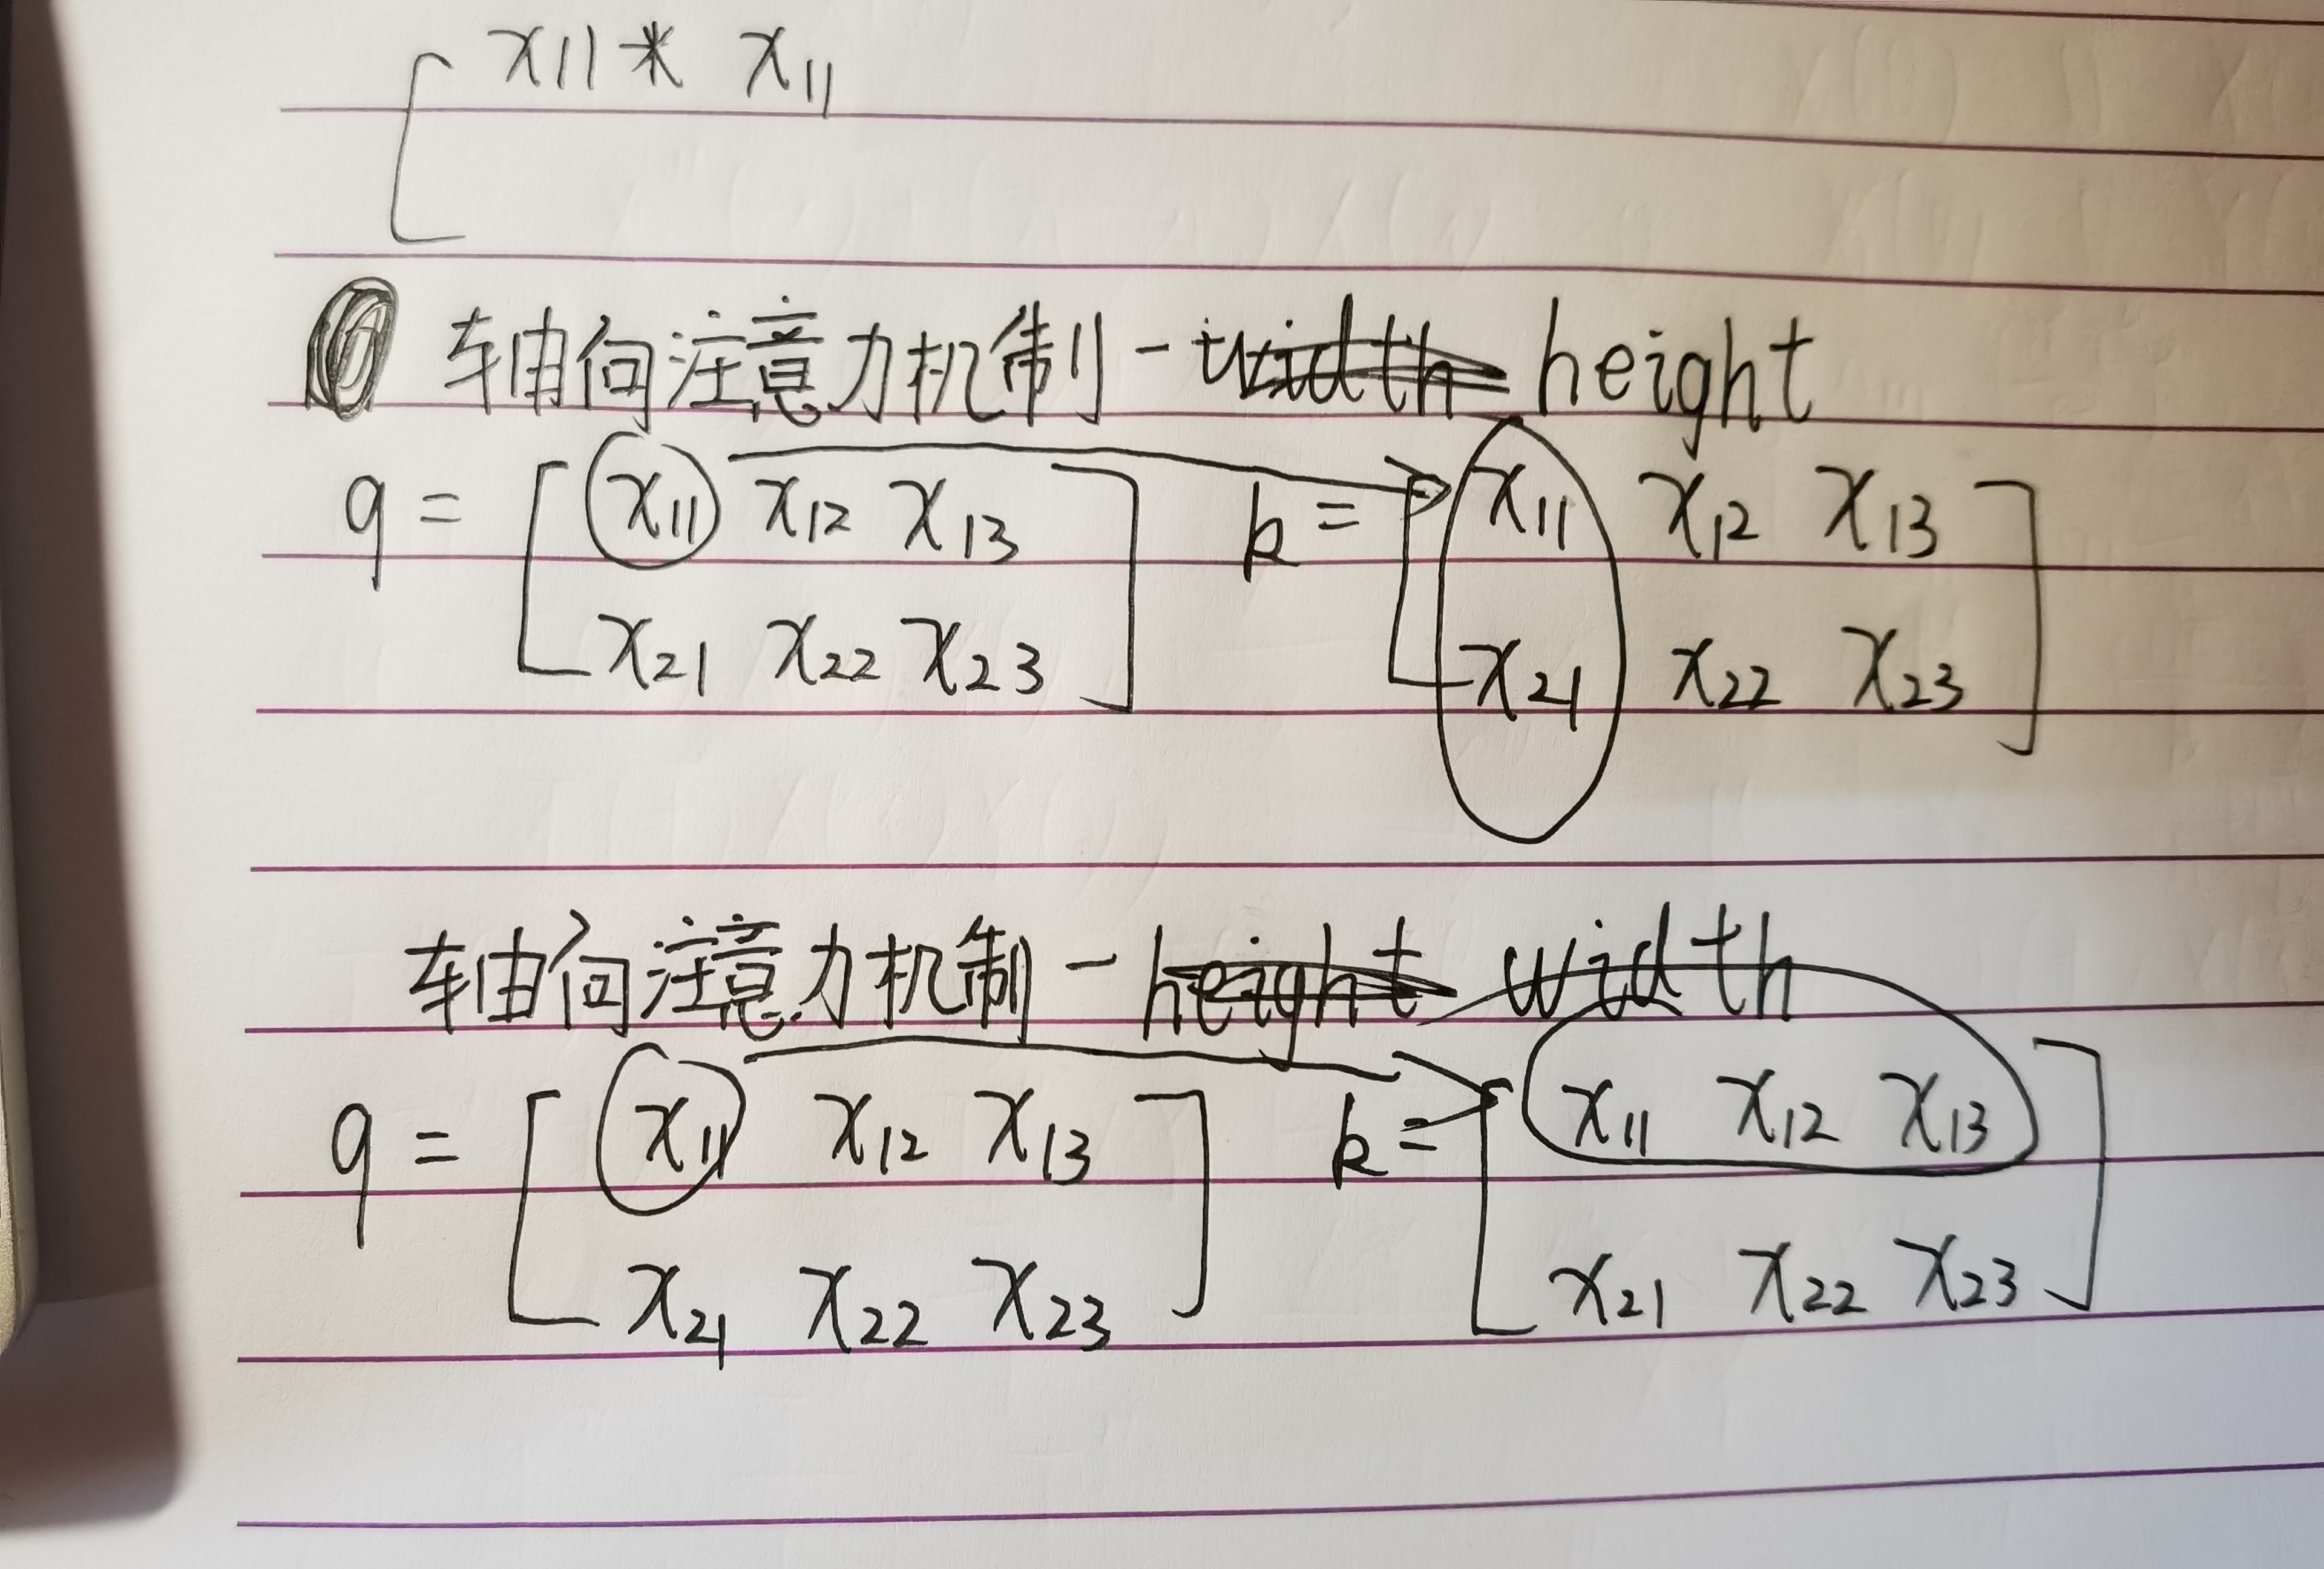 x11 * x11
轴向注意力机制 - width height
q = [ x11 x12 x13 k = [ x11 x12 x13 ]
x21 x22 x23 ] x21 x22 x23
轴向注意力机制 - height width
q = [ x11 x12 x13 ] k = [ x11 x12 x13 ]
x21 x22 x23 x21 x22 x23